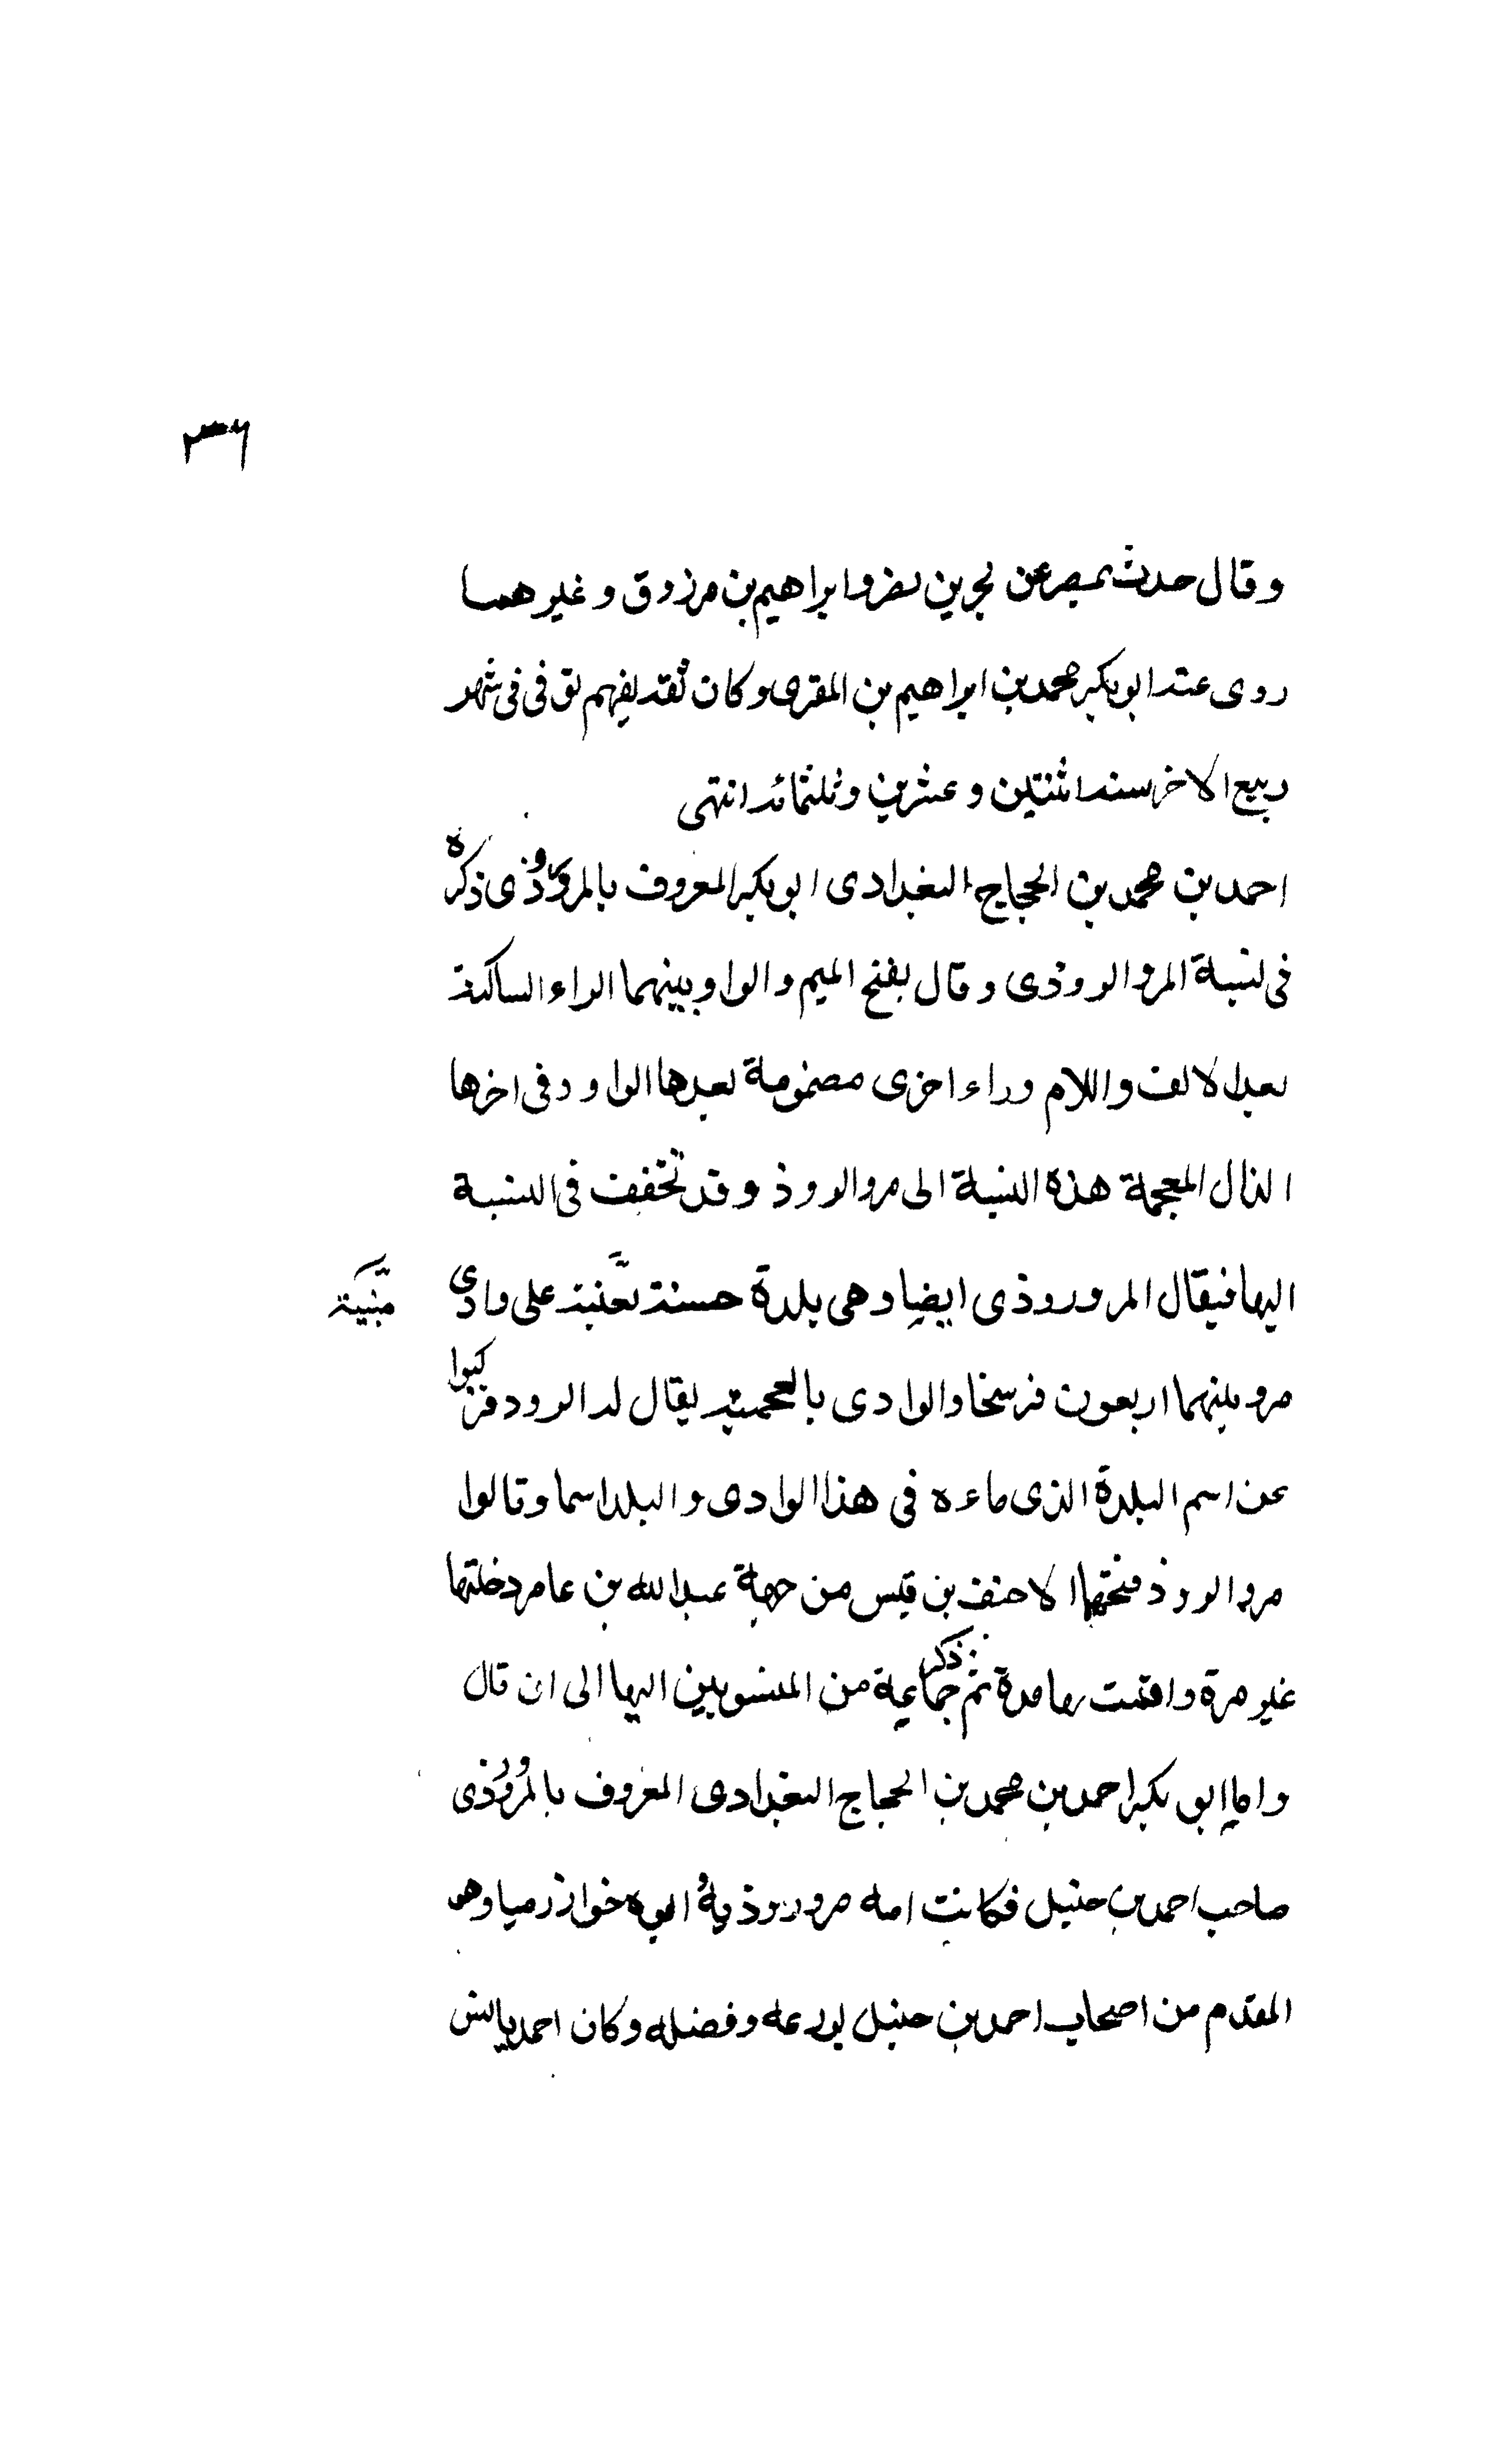 ٣٦
وقال حدث بمصر عن بحر بن نصر وابراهيم بن مرزوق وغيرهما
روى عنه ابو بكر محمد بن ابراهيم بن المقرى وكان ثقة يفهم توفى فى شهر
ربيع الاخر سنة اثنتين وعشرين وثلثمائة انتهى
احمد بن محمد بن الحجاج البغدادى ابو بكر المعروف بالمروذى ذكره
فى نسبة المروالروذى وقال بفتح الميم والواو بينهما الراء الساكنة
بعد الالف واللام وراء اخرى مضمومة بعدها الواو وفى اخرها
الذال المعجمة هذه النسبة الى مروالروذ وقد تخفف فى النسبة
اليها فيقال المروروذى ايضا وهى بلدة حسنة مبنية على وادى
مبنية
مرو بينهما اربعون فرسخا والوادى بالعجمية يقال له الرود فركبوا
عن اسم البلدة الذى ماءه فى هذا الوادى والبلد اسما وقالوا
مروالروذ فتحها الاحنف بن قيس من جهة عبد الله بن عامر دخلتها
غير مرة واقمت بها مدة ثم ذكر جماعة من المنسوبين اليها الى ان قال
واما ابو بكر احمد بن محمد بن الحجاج البغدادى المعروف بالمروذى
صاحب احمد بن حنبل فكانت امه مروروذية وابوه خوارزميا وهو
المقدم من اصحاب احمد بن حنبل لورعه وفضله وكان احمد يانس